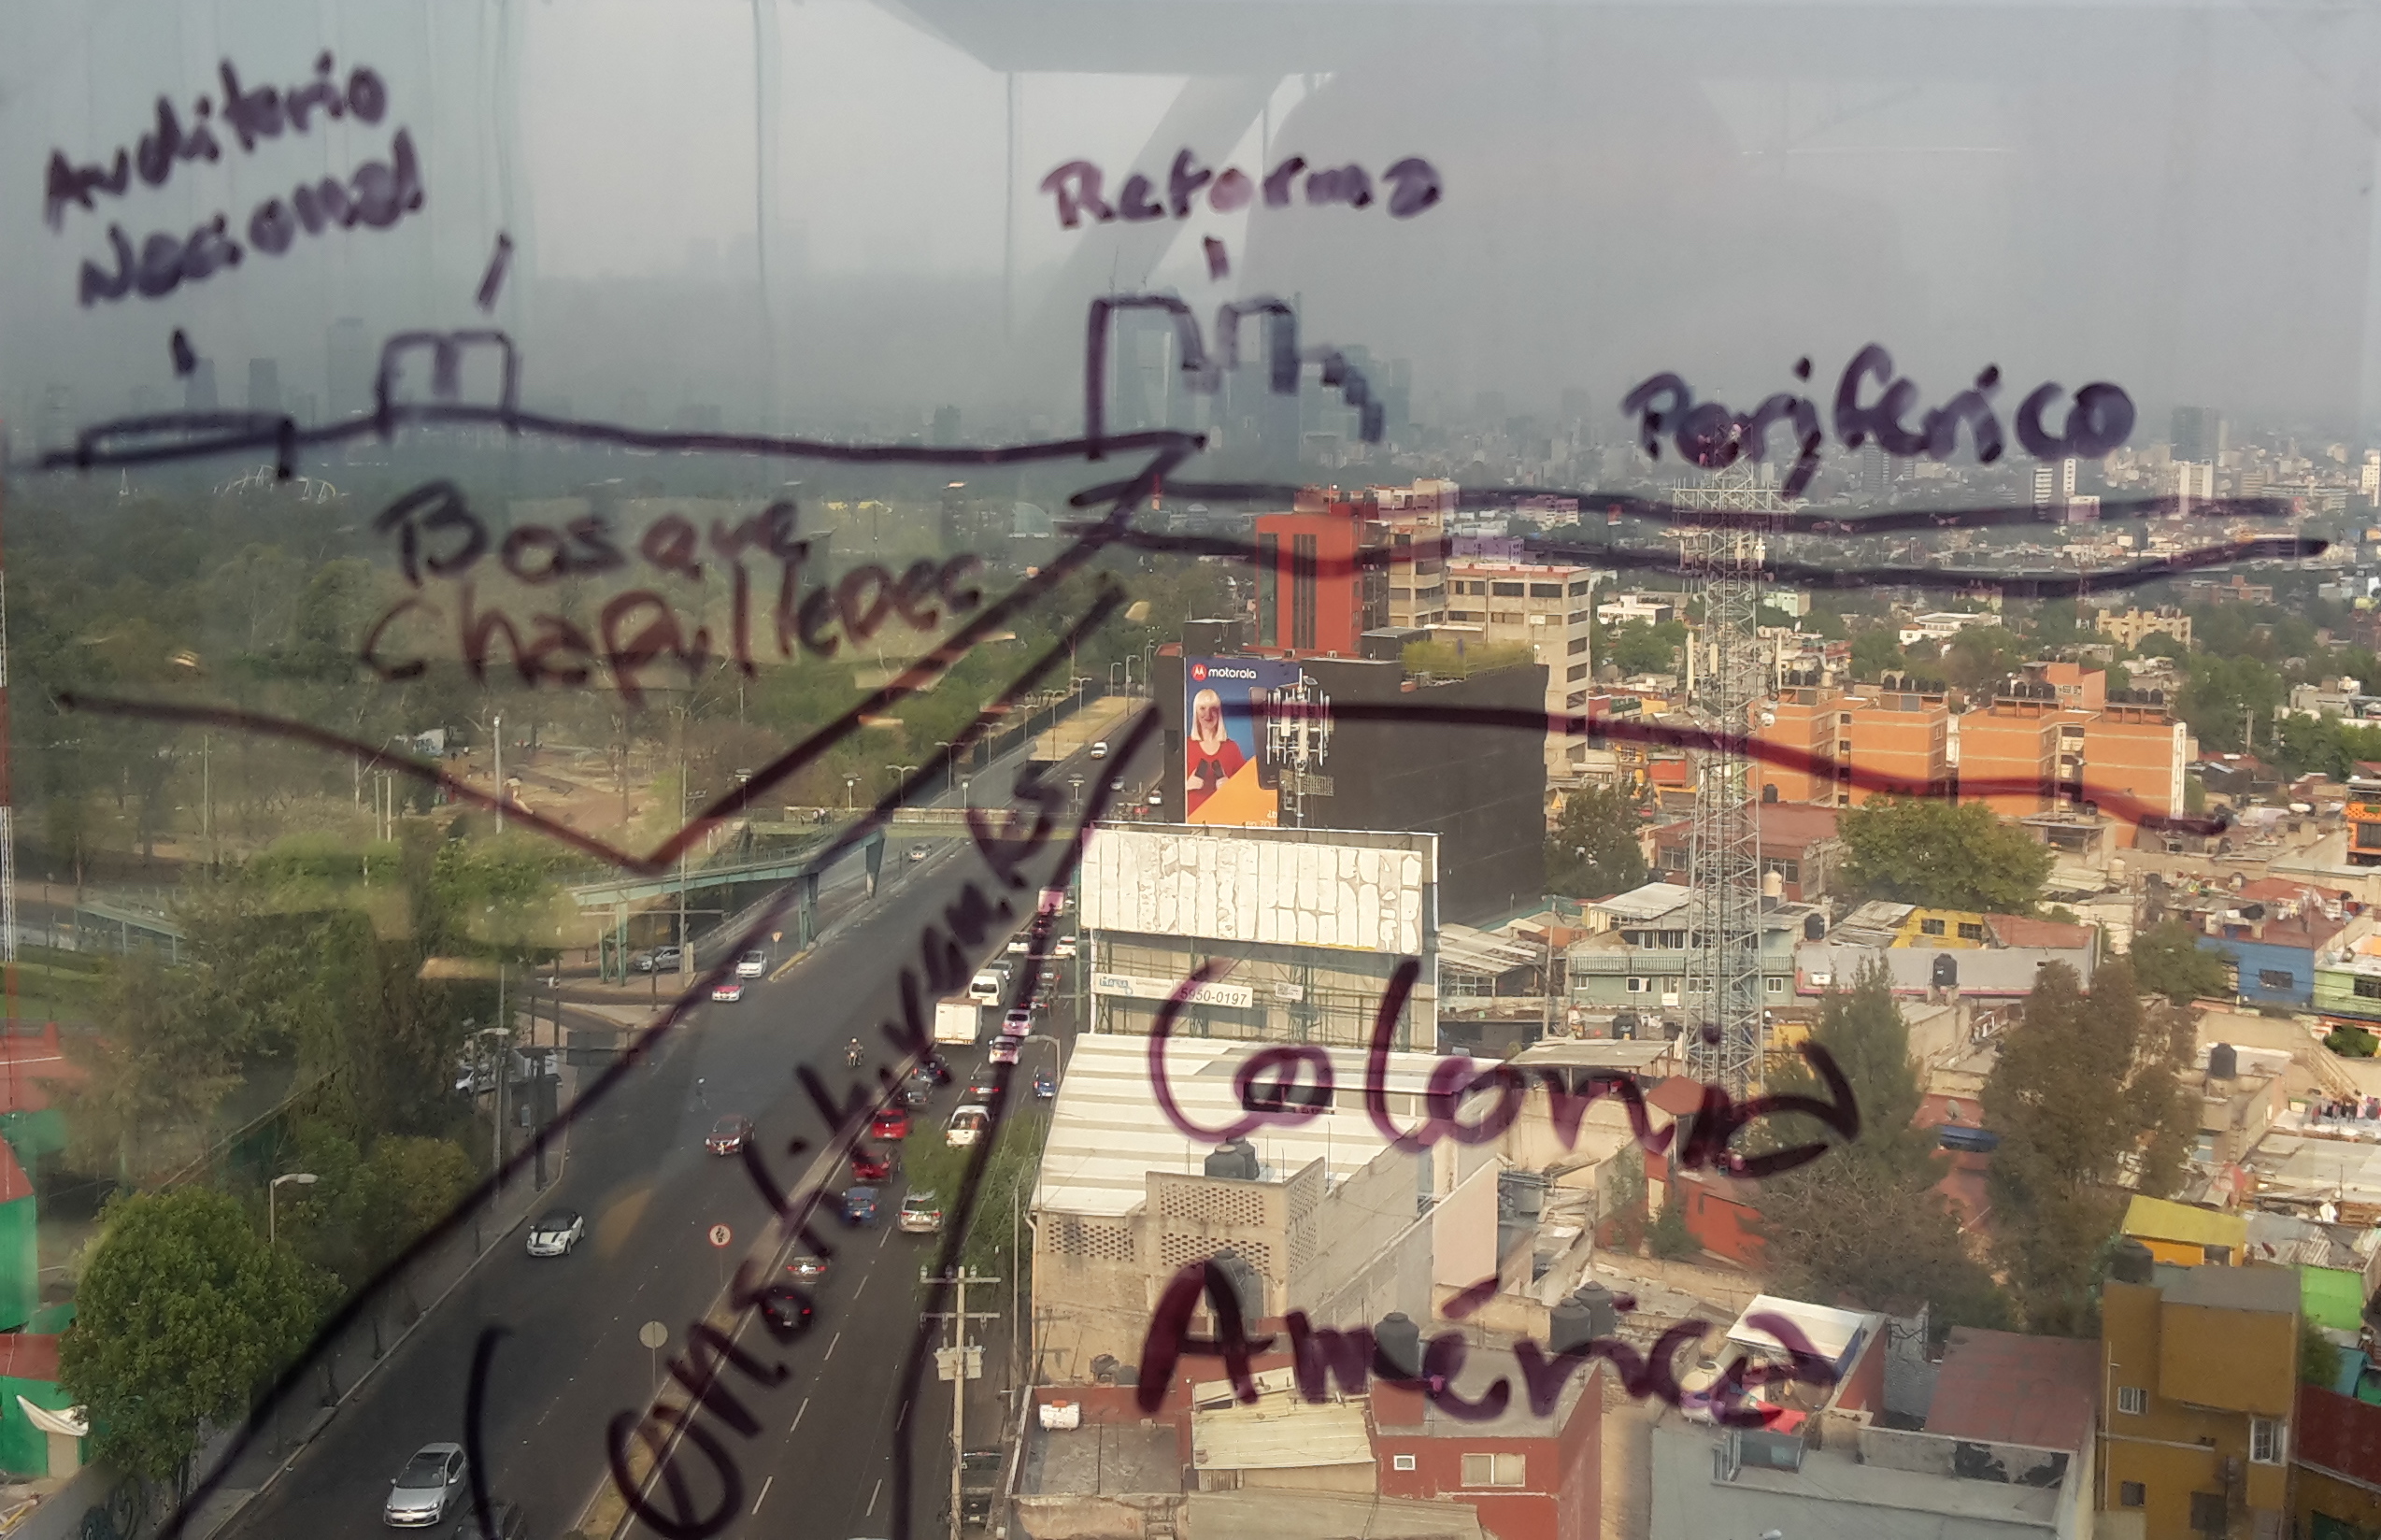 Auditorio
Nacional
Reforma
Periferico
Bosque
Chapulltepec
motorola
Constituyentes
5950-0197
Colonia
América